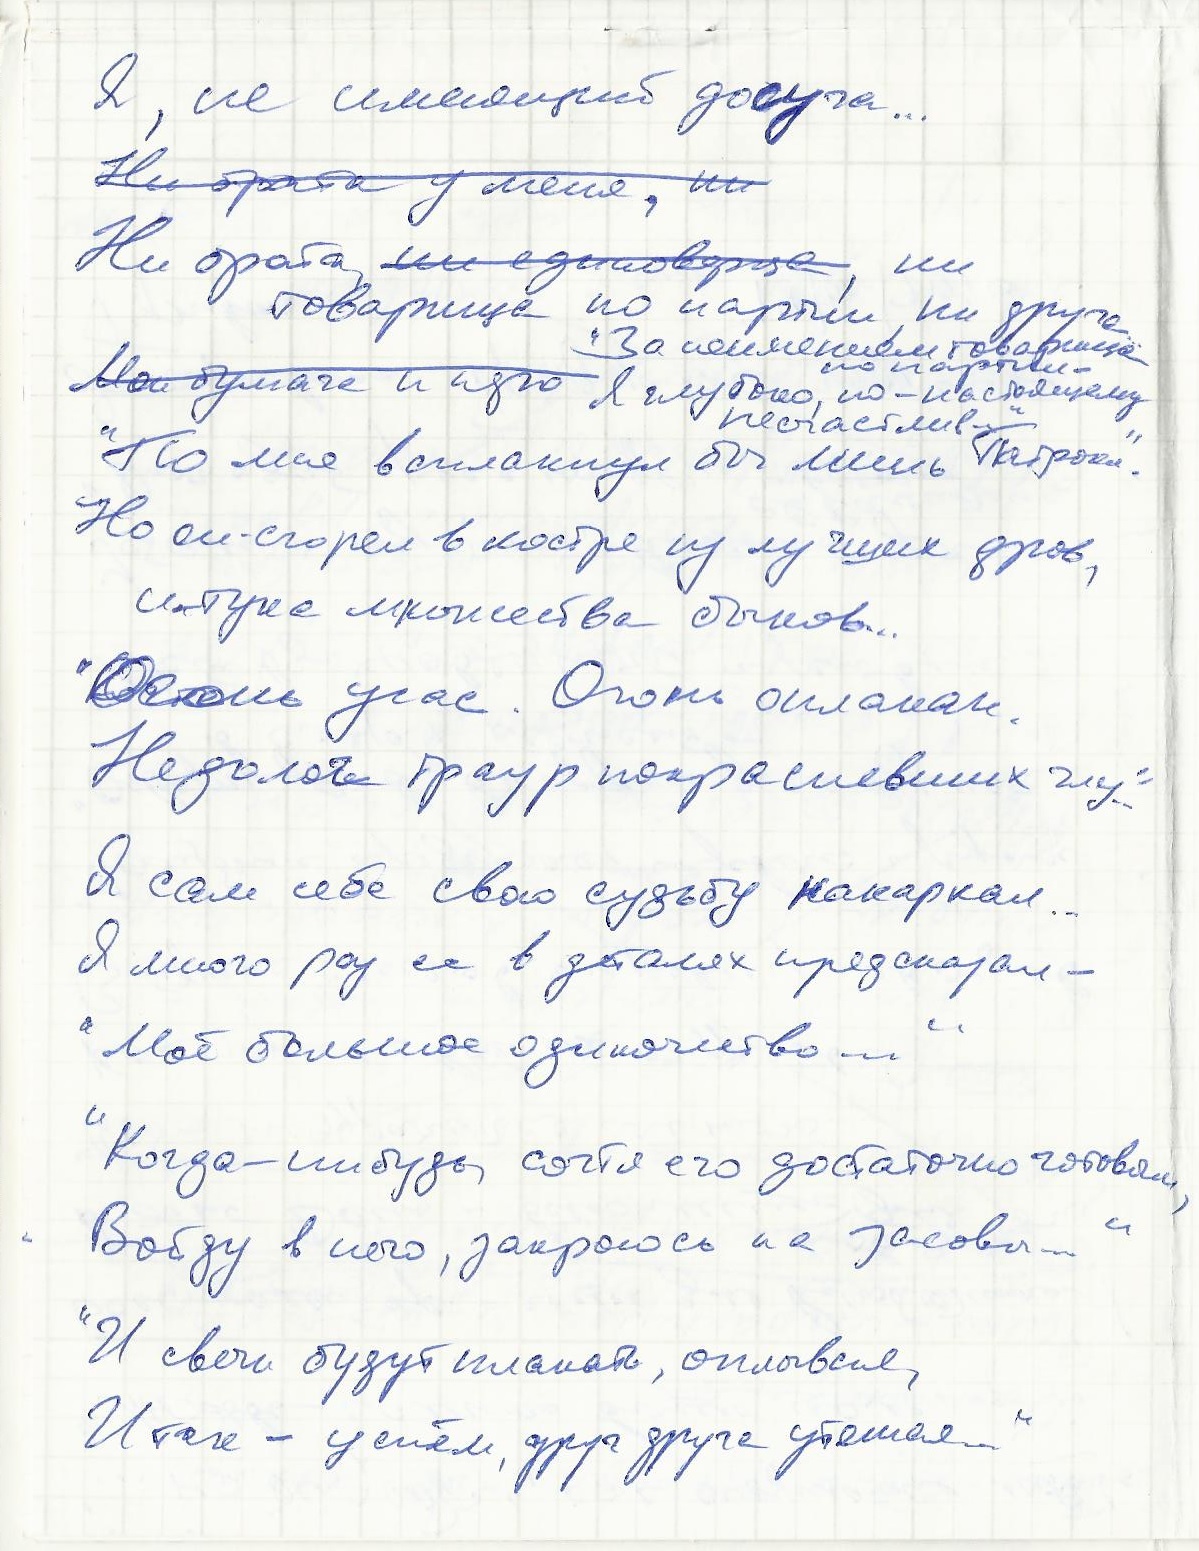 Я, не имеющий досуга...
Ни брата у меня, ни
Ни брата, ни единоверца, ни
товарища по партии, ни друга
"За неимением товарища
по партии –
Мои бумаги и перо Я глубоко, по-настоящему
несчастлив..."
"По мне всплакнул бы лишь Патрокл".
"Но он - сгорел в костре из лучших дров,
и тука множества быков...
"Огонь угас. Огонь оплакан.
Недолог траур покрасневших глаз..."
Я сам себе свою судьбу накаркал...
Я много раз ее в деталях предсказал –
"Моё большое одиночество..."
"Когда-нибудь, сочтя его достаточно готовым,
Войду в него, закроюсь на засовы..."
"И свечи будут плакать, оплывая,
И так – уснём, друг друга утешая..."